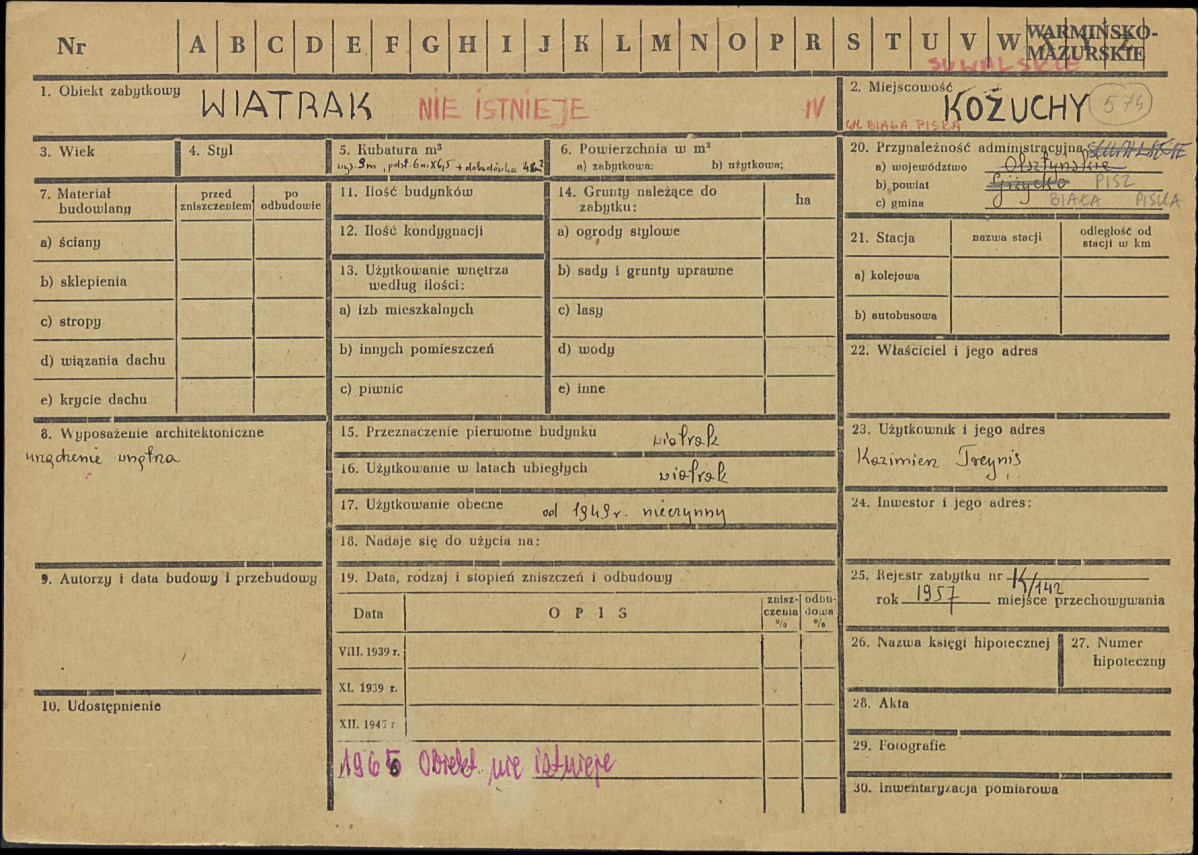 Nr A B C D E F G H I J K L M N O P R S T U V W X Y Z
WARMIŃSKO-
MAZURSKIE
SUWALSKIE
1. Obiekt zabytkowy WIATRAK NIE ISTNIEJE IV
2. Miejscowość KOŻUCHY 574
GM. BIAŁA PISKA
3. Wiek
4. Styl
5. Kubatura m³
wys. 9m, podst. 6m x 6,5 + dobudówka 48m²
6. Powierzchnia w m²
a) zabytkowa: b) użytkowa;
7. Materiał budowlany
przed zniszczeniem
po odbudowie
a) ściany
b) sklepienia
c) stropy
d) wiązania dachu
e) krycie dachu
8. Wyposażenie architektoniczne
urządzenie wnętrza
9. Autorzy i data budowy i przebudowy
10. Udostępnienie
11. Ilość budynków
12. Ilość kondygnacji
13. Użytkowanie wnętrza
według ilości:
a) izb mieszkalnych
b) innych pomieszczeń
c) piwnic
14. Grunty należące do
zabytku:
ha
a) ogrody stylowe
b) sady i grunty uprawne
c) lasy
d) wody
e) inne
15. Przeznaczenie pierwotne budynku wiatrak
16. Użytkowanie w latach ubiegłych wiatrak
17. Użytkowanie obecne od 1949r. nieczynny
18. Nadaje się do użycia na:
19. Data, rodzaj i stopień zniszczeń i odbudowy
Data
OPIS
znisz-
czenia
%
odbu-
dowa
%
VIII. 1939 r.
XI. 1939 r.
XII. 1945 r
1966 Obiekt nie istnieje
20. Przynależność administracyjna SUWALSKIE
a) województwo Olsztyńskie
b) powiat Giżycko PISZ
c) gmina BIAŁA PISKA
21. Stacja
nazwa stacji
odległość od
stacji w km
a) kolejowa
b) autobusowa
22. Właściciel i jego adres
23. Użytkownik i jego adres
Kazimierz Treynis
24. Inwestor i jego adres:
25. Rejestr zabytku nr K/142
rok 1957 miejsce przechowywania
26. Nazwa księgi hipotecznej
27. Numer
hipoteczny
28. Akta
29. Fotografie
30. Inwentaryzacja pomiarowa